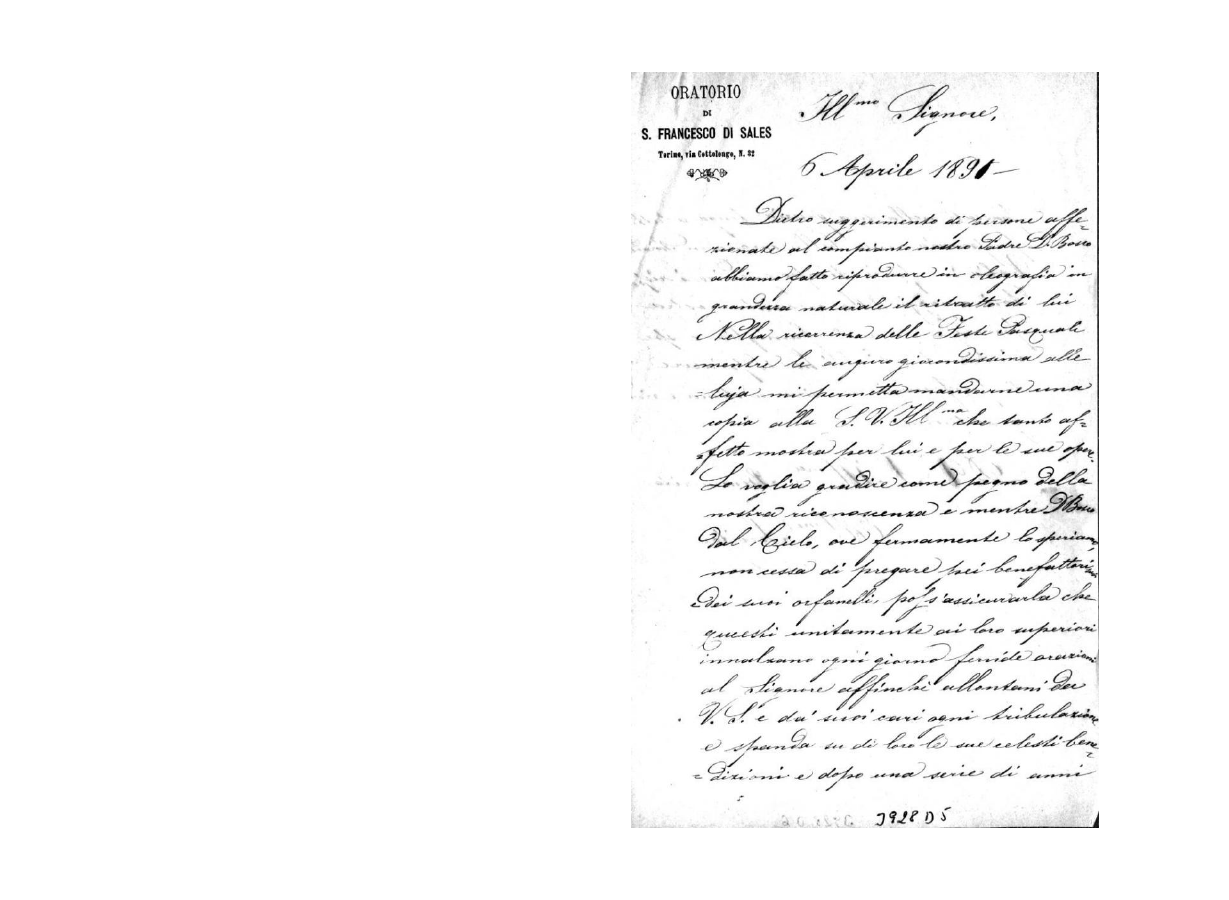 ORATORIO
DI
S. FRANCESCO DI SALES
Torino, via Cottolengo, N. 32
Ill.mo Signore,
6 Aprile 1891 —
Dietro suggerimento di persone affe=
zionate al compianto nostro Padre D. Bosco
abbiamo fatto riprodurre in oleografia in
grandezza naturale il ritratto di lui
Nella ricorrenza delle Feste Pasquale
mentre le auguro giocondissima alle
=luja mi permetta mandarne una
copia alla S. V. Ill.ma che tanto af=
=fetto mostra per lui e per le sue opere.
Lo voglia gradire come pegno della
nostra riconoscenza e mentre D. Bosco
dal Cielo, ove fermamente lo speriamo,
non cessa di pregare pei benefattori suoi
e dei suoi orfanelli, posso assicurarla che
questi unitamente ai loro superiori
innalzano ogni giorno fervide orazioni
al Signore affinchè allontani da
V. S. e da' suoi cari ogni tribulazione
e spanda su di loro le sue celesti bene
=dizioni e dopo una serie di anni
3928 D 5